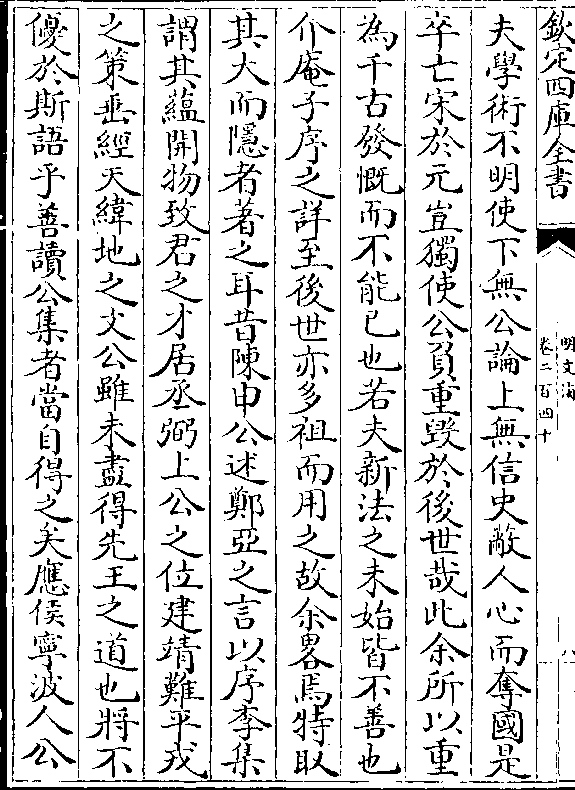 欽定四庫全書
明文海
卷二百四十
八
夫學術不明使下無公論上無信史敝人心而奪國是
卒亡宋於元豈獨使公負重毀於後世哉此余所以重
為千古發慨而不能已也若夫新法之未始皆不善也
介庵子序之詳至後世亦多祖而用之故余畧焉特取
其大而隱者著之耳昔陳申公述鄭亞之言以序李集
謂其蘊開物致君之才居丞弼上公之位建靖難平戎
之策垂經天緯地之文公雖未盡得先王之道也將不
優於斯語乎善讀公集者當自得之矣應侯寧波人公